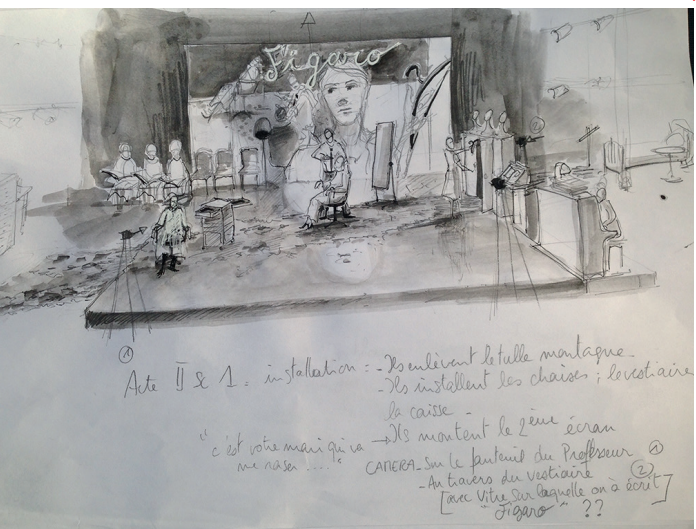 Figaro
①
Acte II Sc 1 = installation = - Ils enlèvent le tulle montagne
- Ils installent les chaises ; le vestiaire
la caisse -
→ Ils montent le 2ème écran
"c'est votre mari qui va
me raser ...."
CAMERA - Sur le fauteuil du Professeur ①
- Au travers du vestiaire ②
[avec Vitre sur laquelle on a écrit]
"Figaro" ??